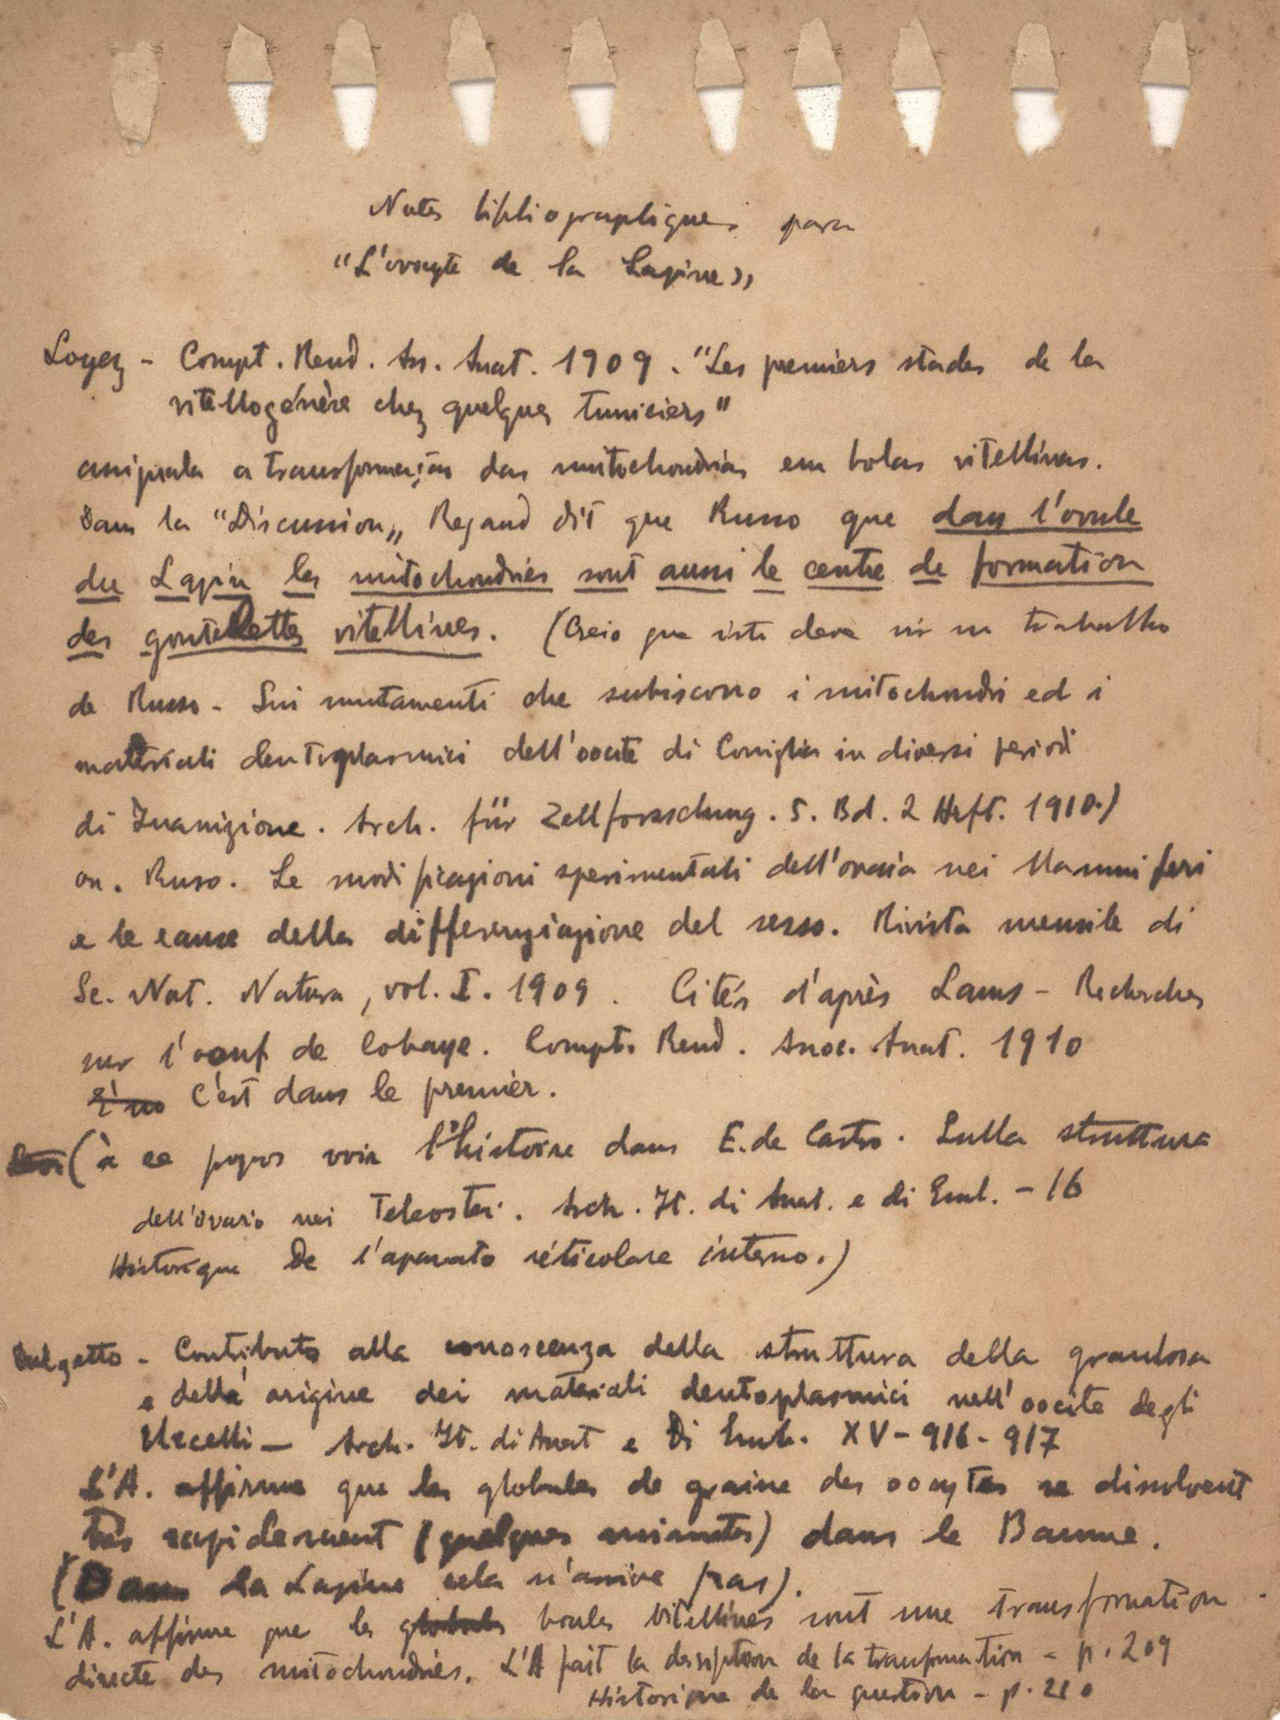 Notes bibliographiques para
"L'ovocyte de la Lapine"
Loyez - Compt. Rend. Ass. Anat. 1909. "Les premiers stades de la
vitellogénèse chez quelques tuniciers"
assinala a transformação das mitochondrias em bolas vitellinas.
Dans la "Discussion" Regaud dit que Russo que dans l'ovule
du Lapin les mitochondries sont aussi le centre de formation
des gouttelettes vitellines. (Creio que isto deve vir no trabalho
de Russo - Sui mutamenti che subiscono i mitochondri ed i
materiali deutoplasmici dell'oocite di Coniglia in diversi periodi
di Inanizione. Arch. für Zellforschung. 5. Bd. 2 Heft. 1910.)
ou. Russo. Le modificazioni sperimentali dell'ovaia nei Mammiferi
e le cause della differenziazione del sesso. Rivista mensile di
Sc. Nat. Natura, vol. I. 1909. Cités d'après Lams - Recherches
sur l'oeuf de Cobaye. Compt. Rend. Assoc. Anat. 1910
C'est dans le premier.
(à ce propos voir l'histoire dans E. de Castro. Sulla struttura
dell'ovario nei Teleostei. Arch. It. di Anat. e di Emb. - 16
Historique de l'aparato réticolare interno.)
Bulgatto - Contributo alla conoscenza della struttura della granulosa
e della origine dei materiali deutoplasmici nell'oocite degli
Uccelli - Arch. It. di Anat e Di Emb. XV - 916 - 917
L'A. affirme que les globules de graine des oocytes se dissolvent
très rapidement (quelques minutes) dans le Baume.
(Dans la Lapine cela n'arrive pas).
L'A. affirme que les globules boules vitellines sont une transformation
directe des mitochondries. L'A fait la description de la transformation - p. 209
Historique de la question - p. 210